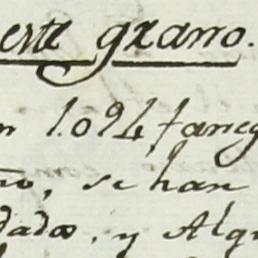 este grano.
n 1.094 faneg
no, se han
dados, y Alqu